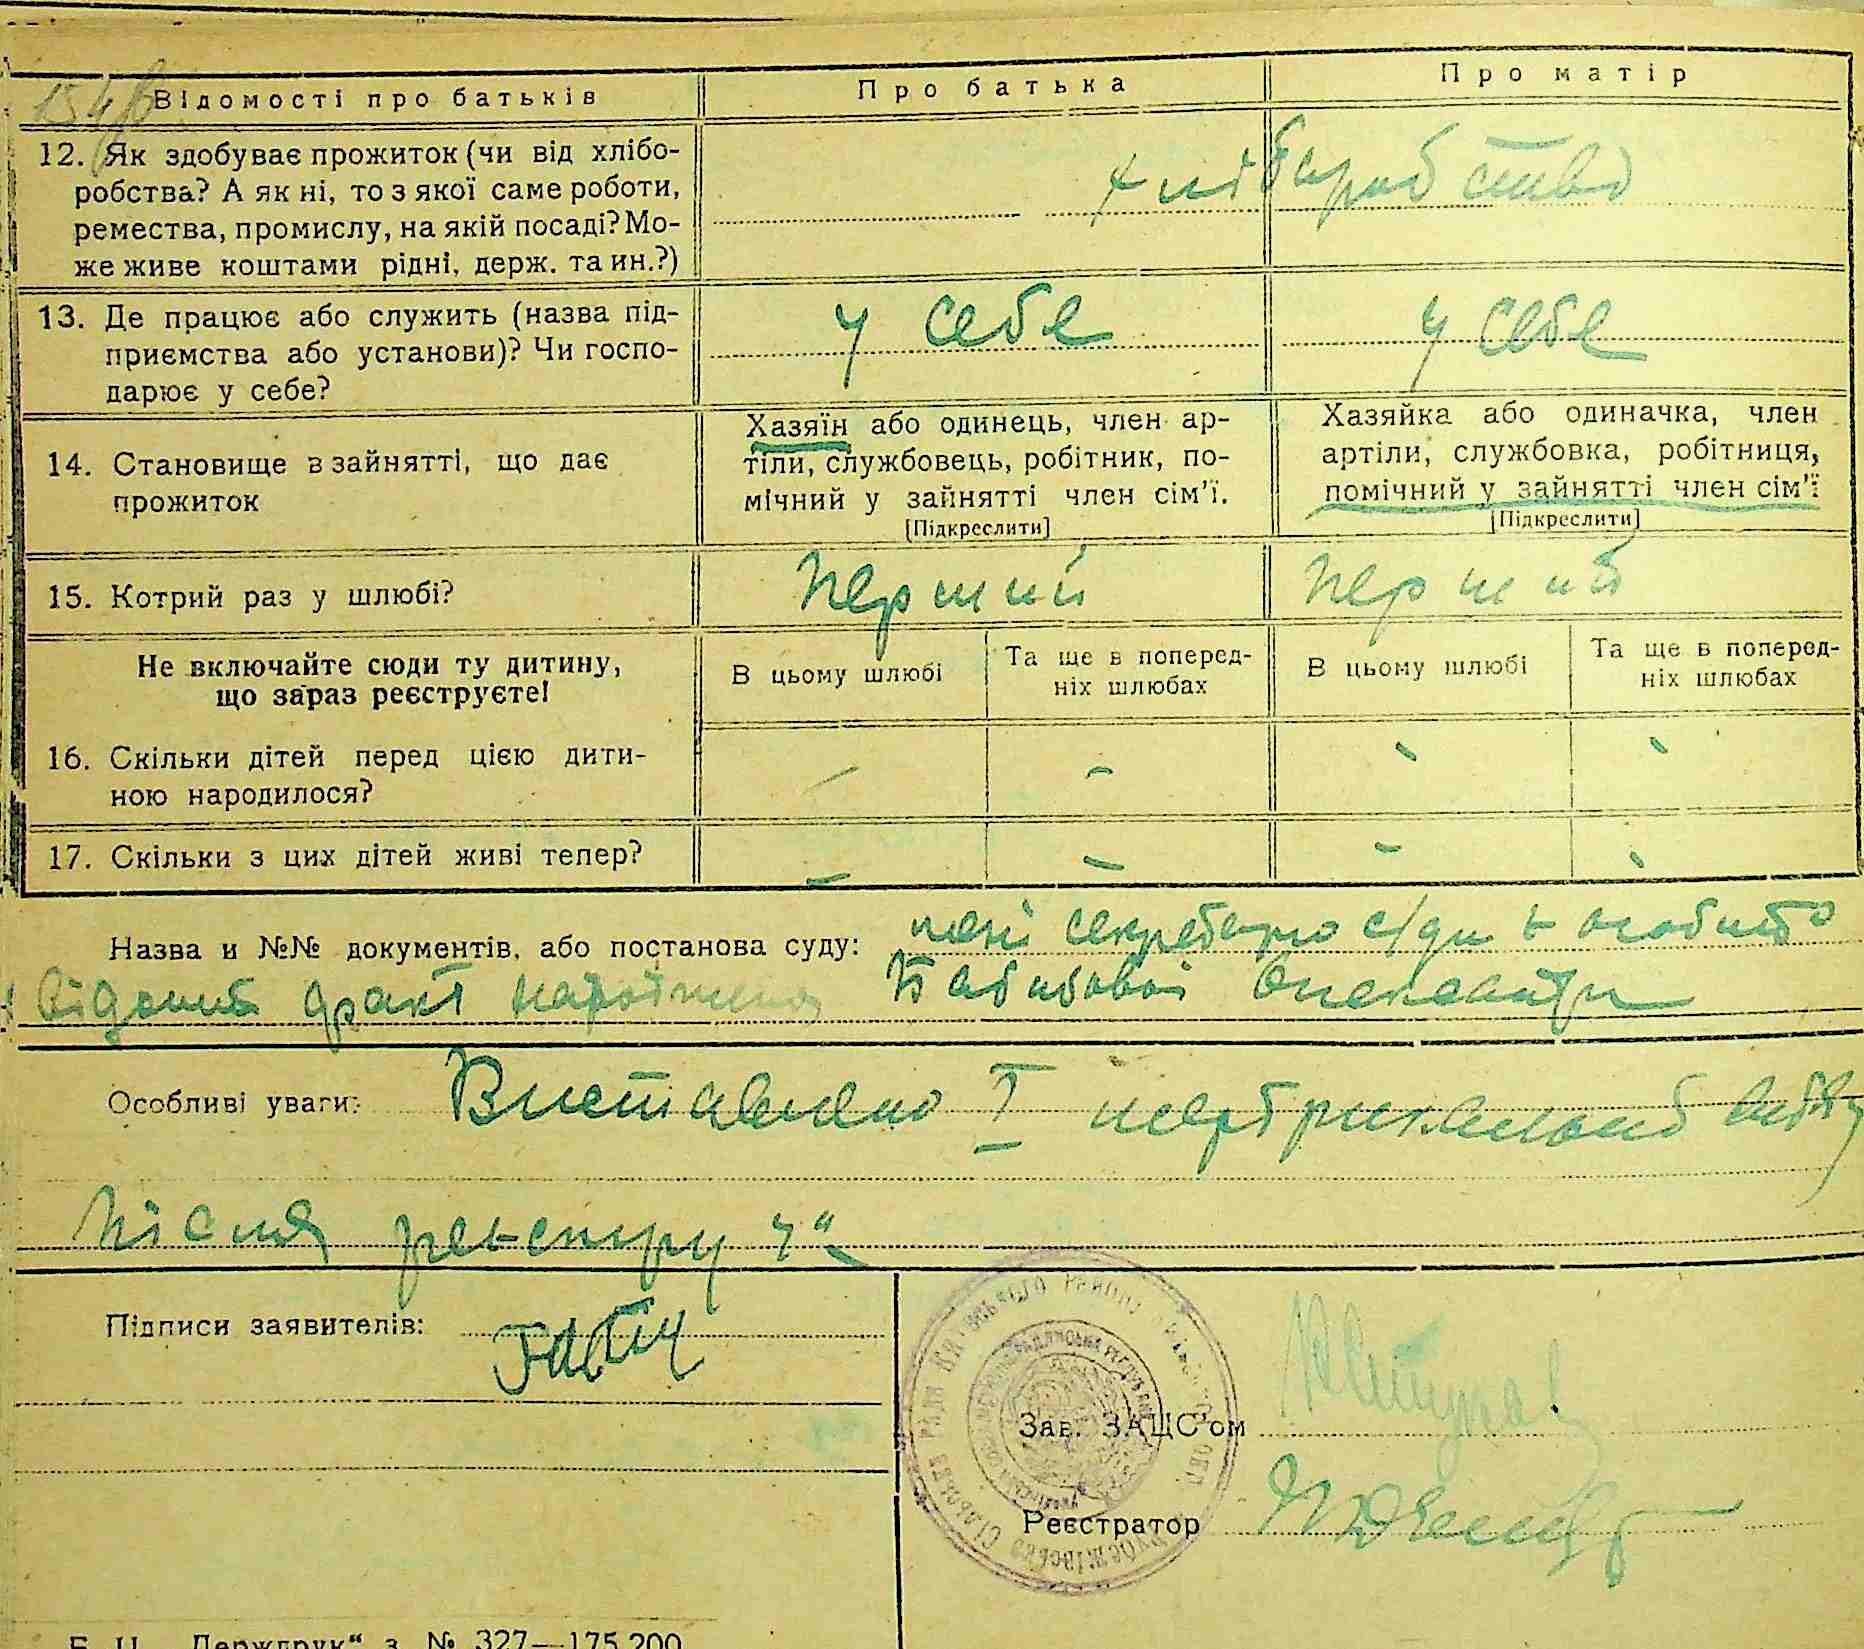 Відомості про батьків
Про батька
Про матір
12. Як здобуває прожиток (чи від хлібо-
робства? А як ні, то з якої саме роботи,
ремества, промислу, на якій посаді? Мо-
же живе коштами рідні, держ. та ин.?)
хліборобство
13. Де працює або служить (назва під-
приємства або установи)? Чи госпо-
дарює у себе?
у себе
у себе
14. Становище в зайнятті, що дає
прожиток
Хазяїн або одинець, член ар-
тіли, службовець, робітник, по-
мічний у зайнятті член сім'ї.
[Підкреслити]
Хазяйка або одиначка, член
артіли, службовка, робітниця,
помічний у зайнятті член сім'ї
[Підкреслити]
15. Котрий раз у шлюбі?
перший
перший
Не включайте сюди ту дитину,
що зараз реєструєте!
В цьому шлюбі
Та ще в поперед-
ніх шлюбах
В цьому шлюбі
Та ще в поперед-
ніх шлюбах
16. Скільки дітей перед цією дити-
ною народилося?
17. Скільки з цих дітей живі тепер?
Назва и №№ документів, або постанова суду:
мені секретарю с/ради особисто
відомий факт народження
Особливі уваги:
Виставлено
після реєстру
Підписи заявителів:
Зав. ЗАЦС'ом
Реєстратор
Б. Ц. „Держдрук“ з. № 327—175.200